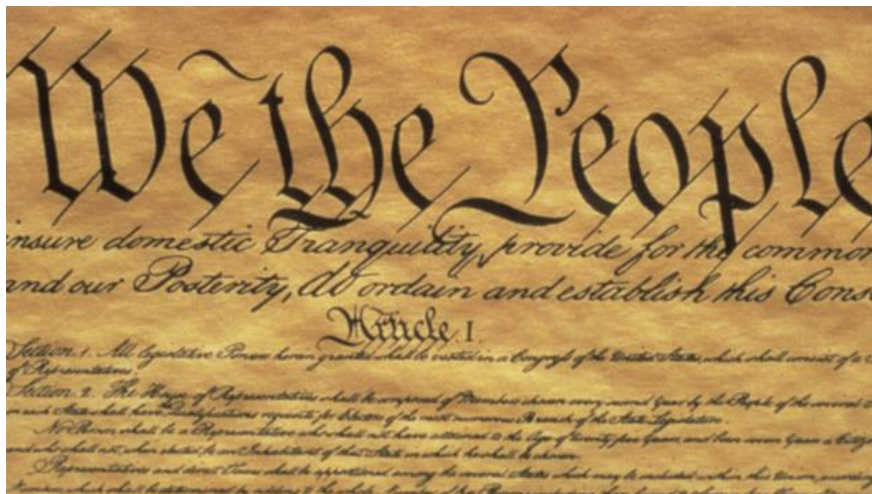 We the People
insure domestic Tranquility, provide for the common
and our Posterity, do ordain and establish this Cons
Article. I.
Section. 1. All legislative Powers herein granted shall be vested in a Congress of the United States, which shall consist of a S
of Representatives.
Section. 2. The House of Representatives shall be composed of Members chosen every second Year by the People of the several S
in each State shall have Qualifications requisite for Electors of the most numerous Branch of the State Legislature.
No Person shall be a Representative who shall not have attained to the Age of twenty five Years, and been seven Years a Citizen
and who shall not, when elected, be an Inhabitant of that State in which he shall be chosen.
Representatives and direct Taxes shall be apportioned among the several States which may be included within this Union, according
Numbers, which shall be determined by adding to the whole Number of